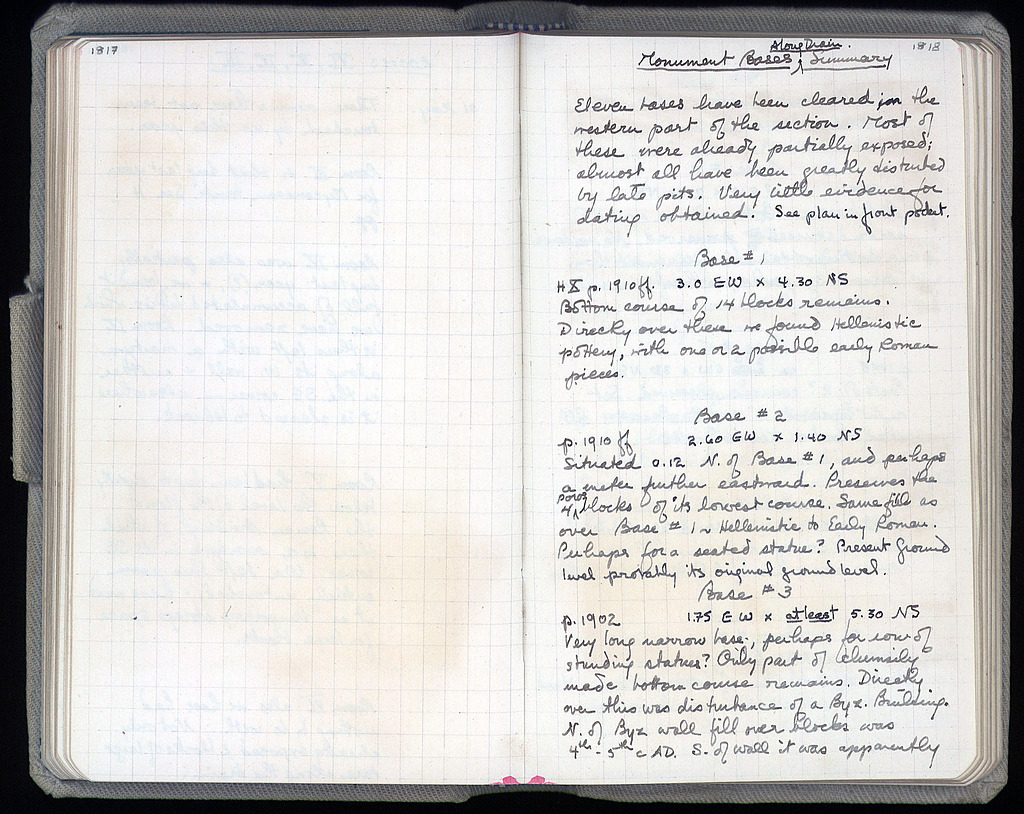 1817
1818
Along Drain.
Monument Bases, Summary
Eleven bases have been cleared in the
western part of the section. Most of
these were already partially exposed;
almost all have been greatly disturbed
by late pits. Very little evidence for
dating obtained. See plan in front pocket.
Base #1
p. 1910ff. 3.0 EW x 4.30 NS
Bottom course of 14 blocks remains.
Directly over these we found Hellenistic
pottery, with one or 2 possible early Roman
pieces.
Base #2
p. 1910 ff 2.60 EW x 1.40 NS
Situated 0.12 N. of Base #1, and perhaps
a meter further eastward. Preserves the
4 poros blocks of its lowest course. Same fill as
over Base #1 ~ Hellenistic to Early Roman.
Perhaps for a seated statue? Present ground
level probably its original ground level.
Base #3
p. 1902 1.75 EW x at least 5.30 NS
Very long narrow base, perhaps for row of
standing statues? Only part of clumsily
made bottom course remains. Directly
over this was disturbance of a Byz. Building.
N. of Byz wall fill over blocks was
4th - 5th c AD. S. of wall it was apparently